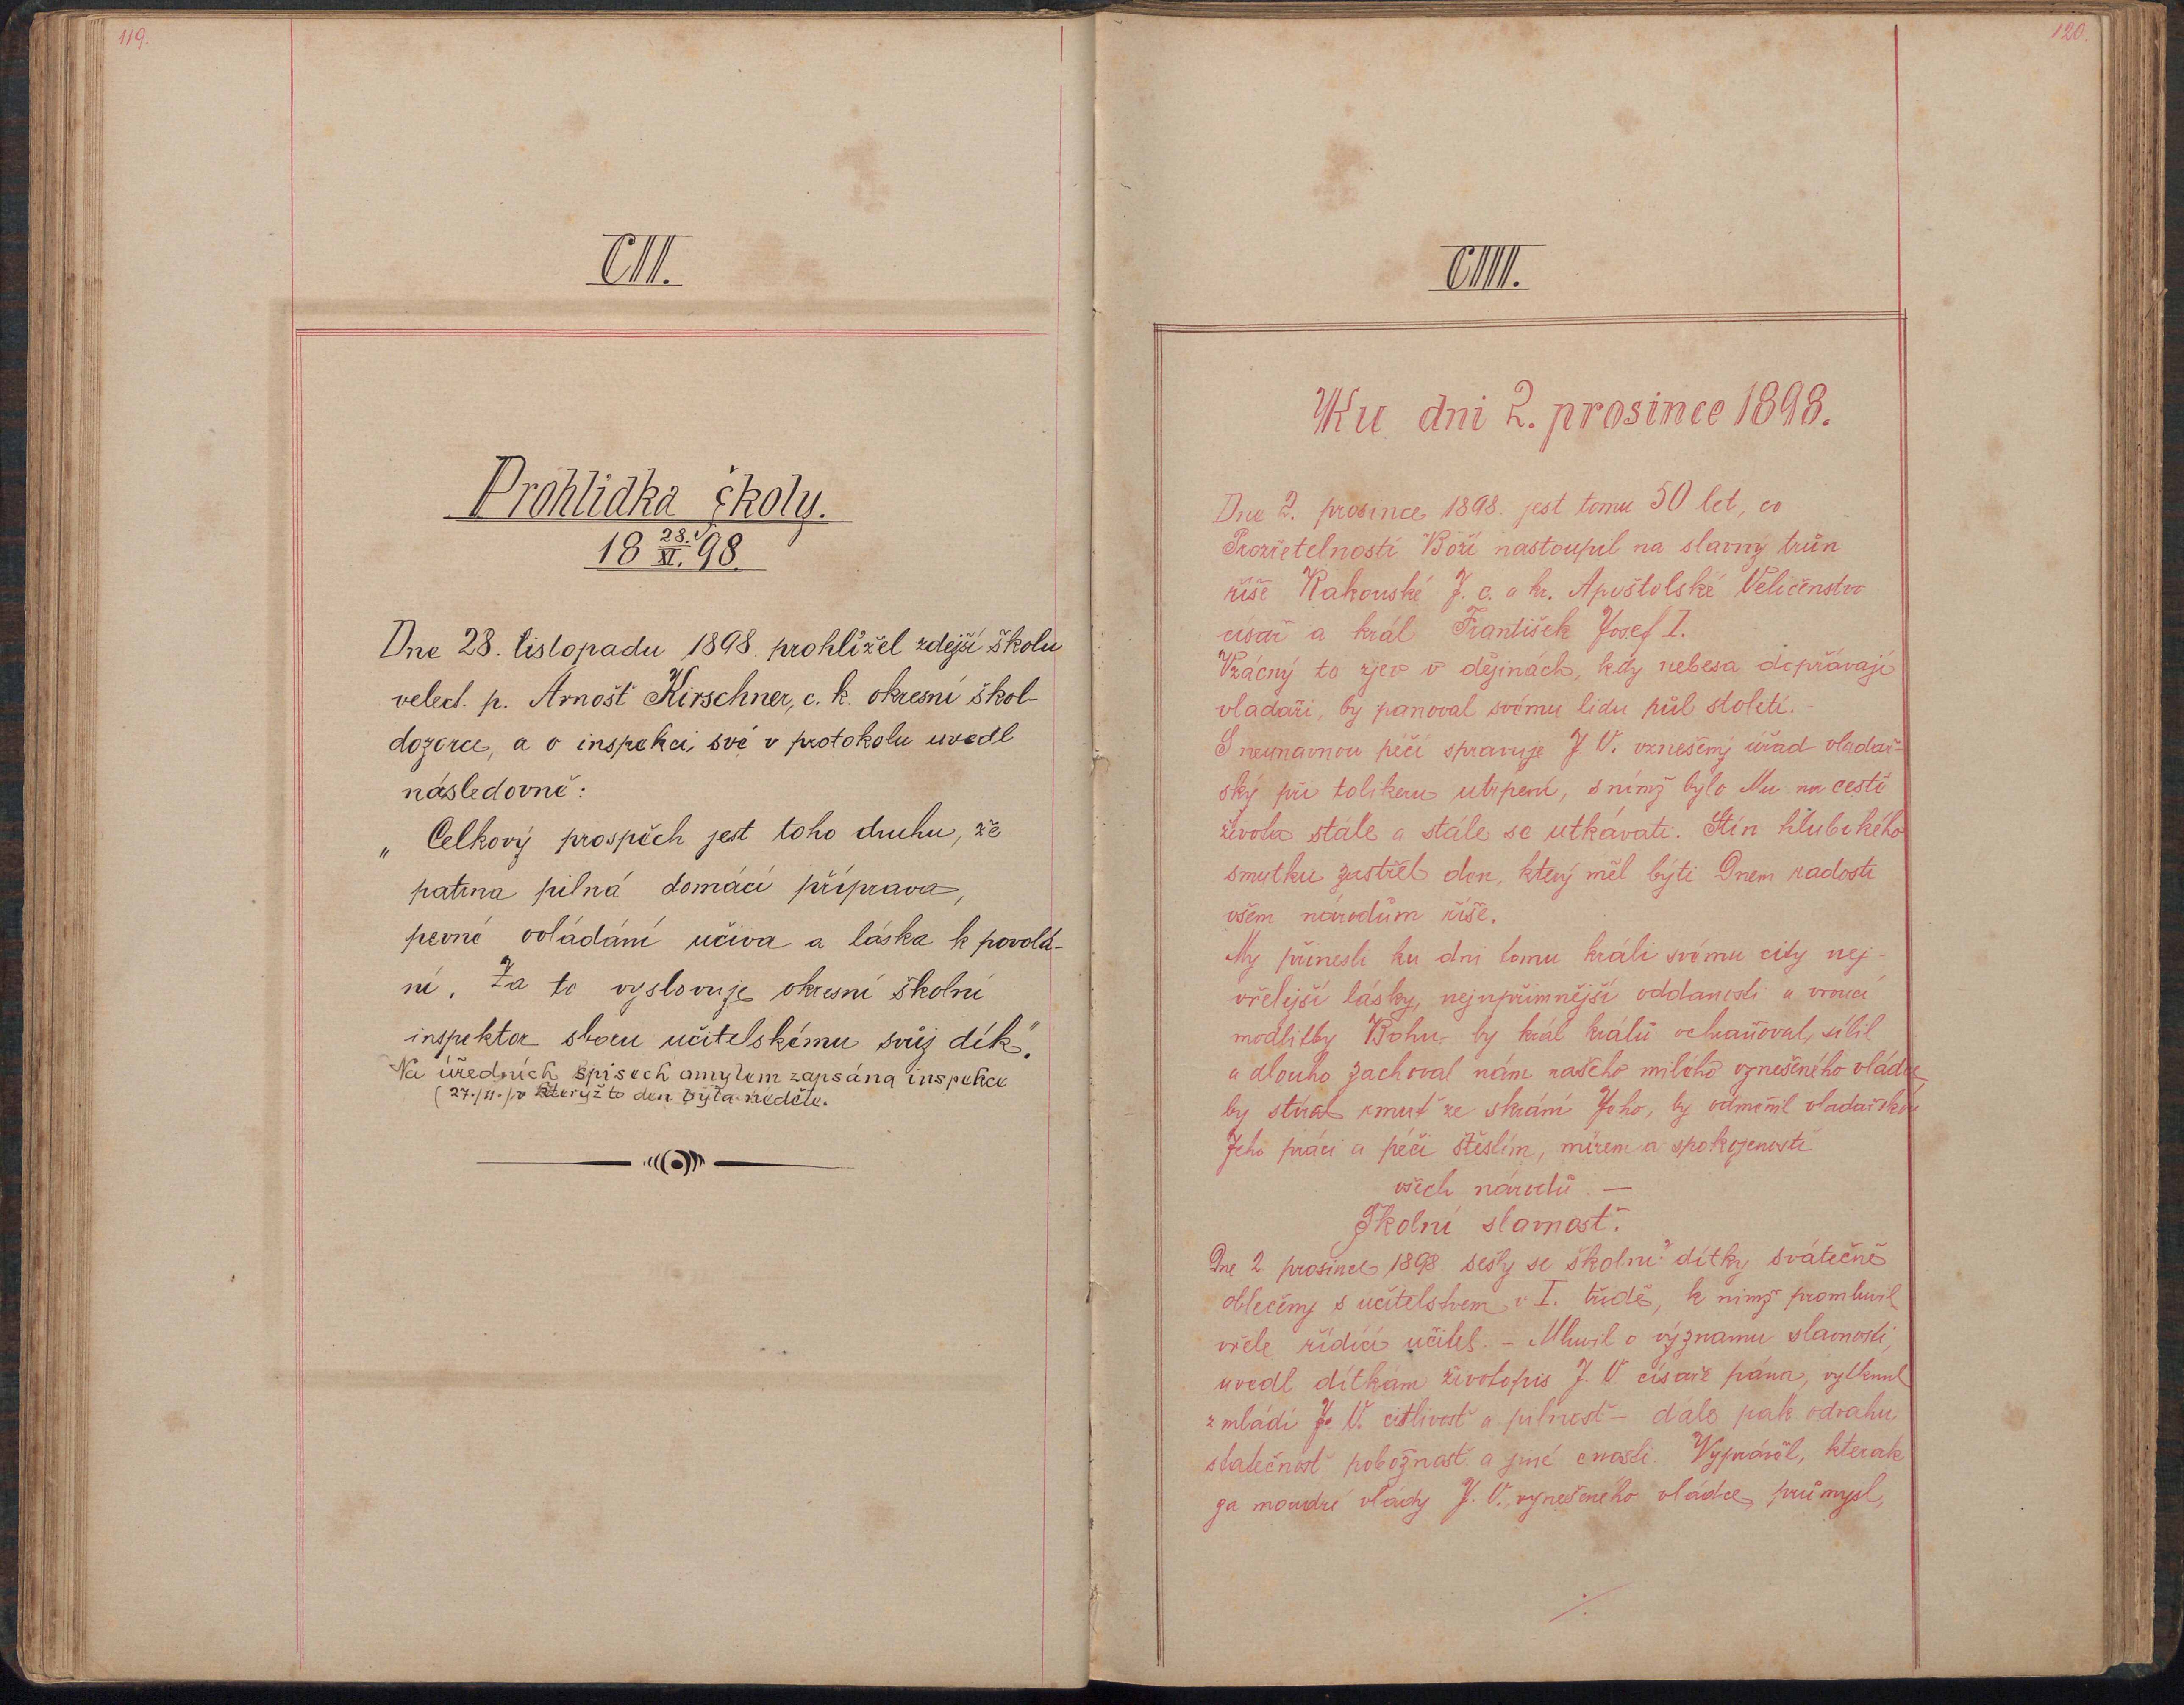 119.
CII.
Prohlídka školy.
18 28./XI. 98.
Dne 28. listopadu 1898 prohlížel zdejší školu
velect. p. Arnošt Kirschner, c. k. okresní škol-
dozorce, a o inspekci své v protokolu uvedl
následovně:
„Celkový prospěch jest toho druhu, že
patrna pilná domácí příprava,
pevné ovládání učiva a láska k povolá-
ní. Za to vyslovuje okresní školní
inspektor sboru učitelskému svůj dík."
Na úředních spisech omylem zapsána inspekce
(27./11.) v kterýžto den byla neděle.
120.
CIII.
Ku dni 2. prosince 1898.
Dne 2. prosince 1898. jest tomu 50 let, co
Prozřetelností Boží nastoupil na slavný trůn
říše Rakouské J. c. a kr. Apoštolské Veličenstvo
císař a král František Josef I.
Vzácný to zjev v dějinách, kdy nebesa dopřávají
vladaři, by panoval svému lidu půl století. -
S neunavnou péčí spravuje J. V. vznešený úřad vladař-
ský při tolikeru utrpení, s nímž bylo Mu na cestě
života stále a stále se utkávati. Stín hlubokého
smutku zastřel den, který měl býti Dnem radosti
všem národům říše.
My přinesli ku dni tomu králi svému city nej-
vřelejší lásky, nejupřímnější oddanosti a vroucí
modlitby Bohu - by král králů ochraňoval, sílil
a dlouho zachoval nám našeho milého vznešeného vládce,
by stíral smut ze skrání Jeho, by odměnil vladařskou
Jeho práci a péči štěstím, mírem a spokojeností
všech národů. —
Školní slavnost.
Dne 2. prosince 1898. sešly se školní dítky svátečně
oblečeny s učitelstvem v I. třídě, k nimž promluvil
vřele řídící učitel. - Mluvil o významu slavnosti,
uvedl dítkám životopis J. V. císaře pána, vytknul
z mládí J. V. citlivost a pilnost - dále pak odvahu
statečnost pobožnost a jiné cnosti. Vyprávěl, kterak
za moudré vlády J. V. vznešeného vládce, průmysl,
./.